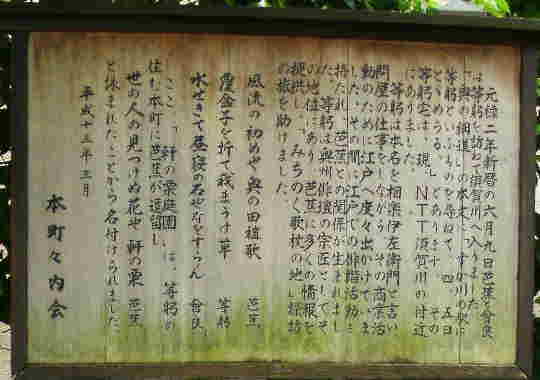 元禄二年新暦の六月九日芭蕉と曾良
は等躬を訪ねて須賀川へ入りました。
「奥の細道」の本文に「すか川の駅に
等躬といふものを尋ねて、四、五日
とゞめらる。」とあります。その
等躬宅は、現、NTT須賀川の付近
にありました。
等躬は本名を相楽伊左衛門と言い
問屋の仕事をしながら、その商業活
動のために江戸へ度々出かけていま
した。その間に江戸での俳諧活動に
携わり、芭蕉との関係が生まれまし
た。等躬は奥州俳壇の宗匠としてそ
の地位にあり、芭蕉に多くの情報を
提供し、「みちのく歌枕の地」探訪
の旅を助けました。
風流の初めや奥の田植歌 芭蕉
覆盆子を折て我まうけ草 等躬
水せきて昼寝の石やなをすらん 曾良
ここ、「軒の栗庭園」は、等躬の
住む本町に芭蕉が逗留し
世の人の見つけぬ花や軒の栗 芭蕉
と詠まれたことから名付けられました。
平成十三年三月
本町々内会